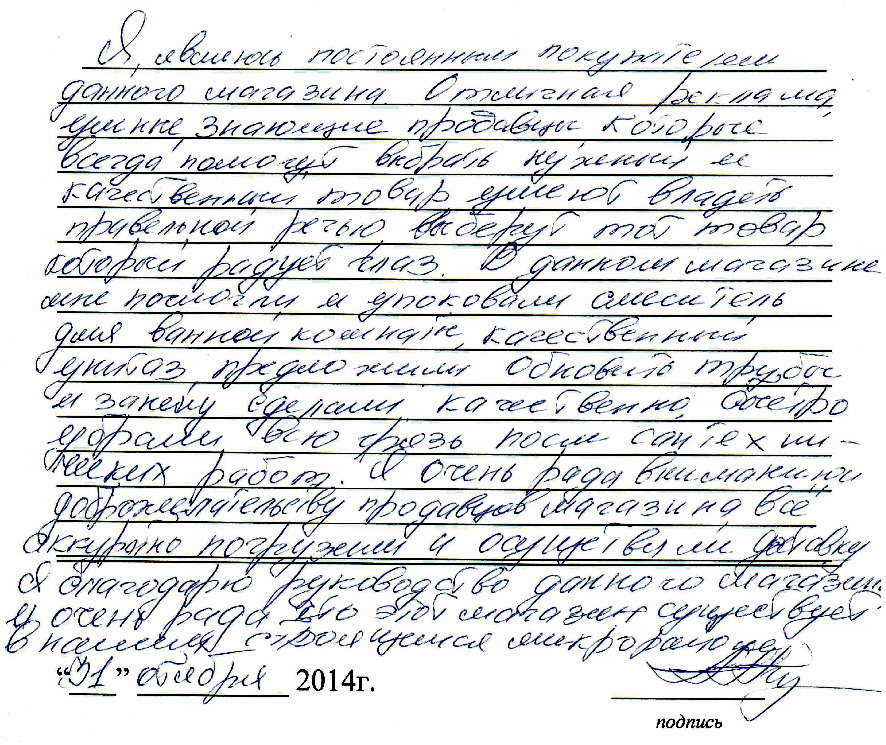 Я, являюсь постоянным покупателем
данного магазина. Отличная реклама,
знающие продавцы которые
всегда помогут выбрать нужный и
качественный товар умеют владеть
правельной речью выберут тот товар
который радует глаз. В данном магазине
мне помогли и упоковали смеситель
для ванной комнаты, качественный
унитаз, предложили обновить трубы
и замену сделали качественно, быстро
убрали всю грязь после сантехни-
ческих работ. Я очень рада вниманию и
доброжелательству продавцов магазина всё
аккуратно погрузили и осуществили доставку
Я благодарю руководство данного магазина
и очень рада что этот магазин существует
в нашем строящемся микрорайоне
“31” октября 2014г.
подпись